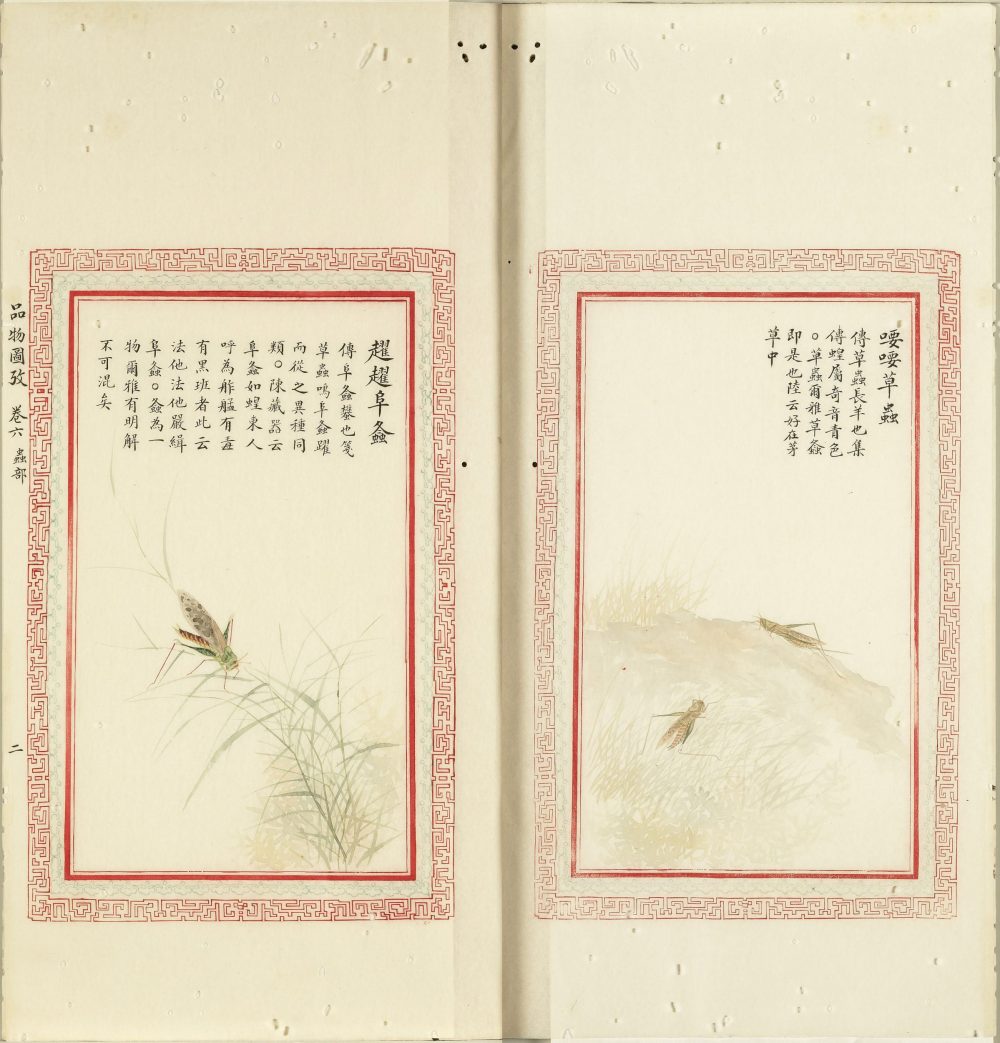 喓喓草蟲
傳草蟲長羊也集
傳蝗屬奇音青色
○草蟲爾雅草螽
即是也陸云好在茅
草中
趯趯阜螽
傳阜螽蠜也箋
草蟲鳴阜螽躍
而從之異種同
類○陳藏器云
阜螽如蝗東人
呼為舴艋有毒
有黑班者此云
法他法他嚴緝
阜螽○螽為一
物爾雅有明解
不可混矣
品物圖攷 卷六 蟲部
二